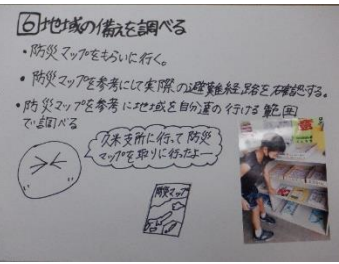 6 地域の備えを調べる
・防災マップをもらいに行く。
・防災マップを参考にして実際の避難経路を確認する。
・防災マップを参考に地域を自分達の行ける範囲
で調べる
久米支所に行って防災
マップを取りに行ったよー
防災マップ